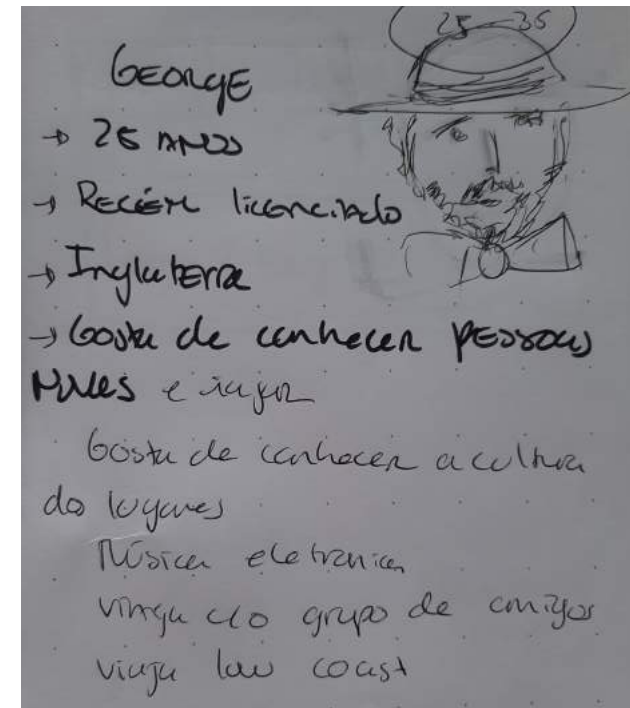 25-35
GEORGE
→ 25 ANOS
→ RECÉM licenciado
→ Inglaterra
→ Gosta de conhecer PESSOAS
NOVAS e viajar
Gosta de conhecer a cultura
do lugares
Música eletronica
viaja c/o grupo de amigos
viaja low coast